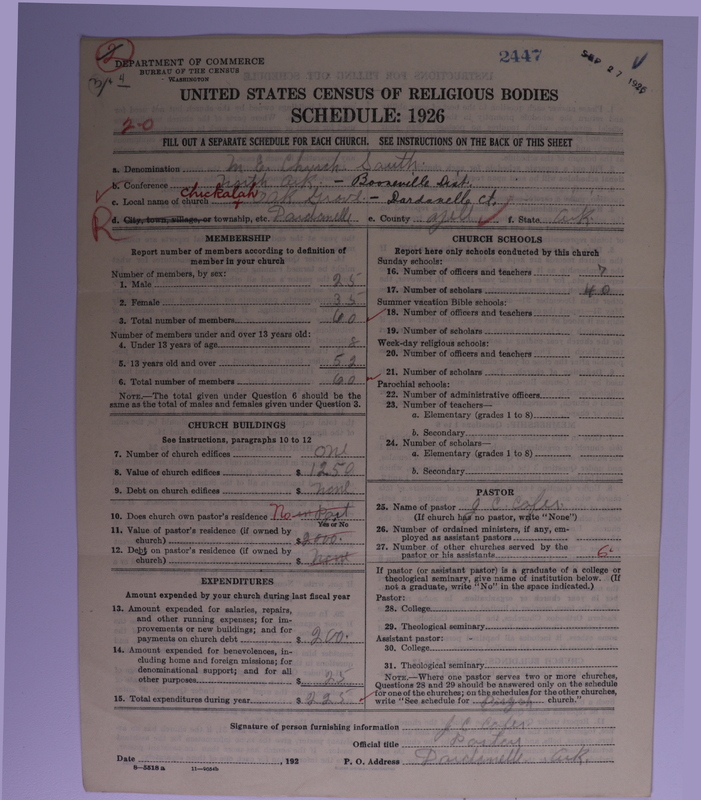 2
DEPARTMENT OF COMMERCE
BUREAU OF THE CENSUS
WASHINGTON
2447
SEP 27 1926
UNITED STATES CENSUS OF RELIGIOUS BODIES
SCHEDULE: 1926
2-0
FILL OUT A SEPARATE SCHEDULE FOR EACH CHURCH. SEE INSTRUCTIONS ON THE BACK OF THIS SHEET
a. Denomination M E Church South
b. Conference North Ark. – Booneville Dist.
Chickalah
c. Local name of church Oak Grove – Dardanelle Ct.
R
d. City, town, village, or township, etc. Dardanelle e. County Yell f. State Ark.
MEMBERSHIP
Report number of members according to definition of member in your church
Number of members, by sex:
1. Male 25
2. Female 35
3. Total number of members 60
Number of members under and over 13 years old:
4. Under 13 years of age 8
5. 13 years old and over 52
6. Total number of members 60
NOTE.—The total given under Question 6 should be the
same as the total of males and females given under Question 3.
CHURCH BUILDINGS
See instructions, paragraphs 10 to 12
7. Number of church edifices one
8. Value of church edifices $ 1250
9. Debt on church edifices $ none
10. Does church own pastor's residence No in Part
Yes or No
11. Value of pastor's residence (if owned by
church) $ 2000.
12. Debt on pastor's residence (if owned by
church) $ none
EXPENDITURES
Amount expended by your church during last fiscal year
13. Amount expended for salaries, repairs,
and other running expenses; for im-
provements or new buildings; and for
payments on church debt $ 200.
14. Amount expended for benevolences, in-
cluding home and foreign missions; for
denominational support; and for all
other purposes $ 25
15. Total expenditures during year $ 225
CHURCH SCHOOLS
Report here only schools conducted by this church
Sunday schools:
16. Number of officers and teachers 7
17. Number of scholars 40
Summer vacation Bible schools:
18. Number of officers and teachers
19. Number of scholars
Week-day religious schools:
20. Number of officers and teachers
21. Number of scholars
Parochial schools:
22. Number of administrative officers
23. Number of teachers—
a. Elementary (grades 1 to 8)
b. Secondary
24. Number of scholars—
a. Elementary (grades 1 to 8)
b. Secondary
PASTOR
25. Name of pastor J C Cofer
(If church has no pastor, write "None")
26. Number of ordained ministers, if any, em-
ployed as assistant pastors
27. Number of other churches served by the
pastor or his assistants 6
If pastor (or assistant pastor) is a graduate of a college or
theological seminary, give name of institution below. (If
not a graduate, write "No" in the space indicated.)
Pastor:
28. College
29. Theological seminary
Assistant pastor:
30. College
31. Theological seminary
NOTE.—Where one pastor serves two or more churches,
Questions 28 and 29 should be answered only on the schedule
for one of the churches; on the schedules for the other churches,
write "See schedule for church."
Signature of person furnishing information J. C. Cofer
Official title Pastor
Date , 192 P. O. Address Dardanelle Ark.
8—5518 a